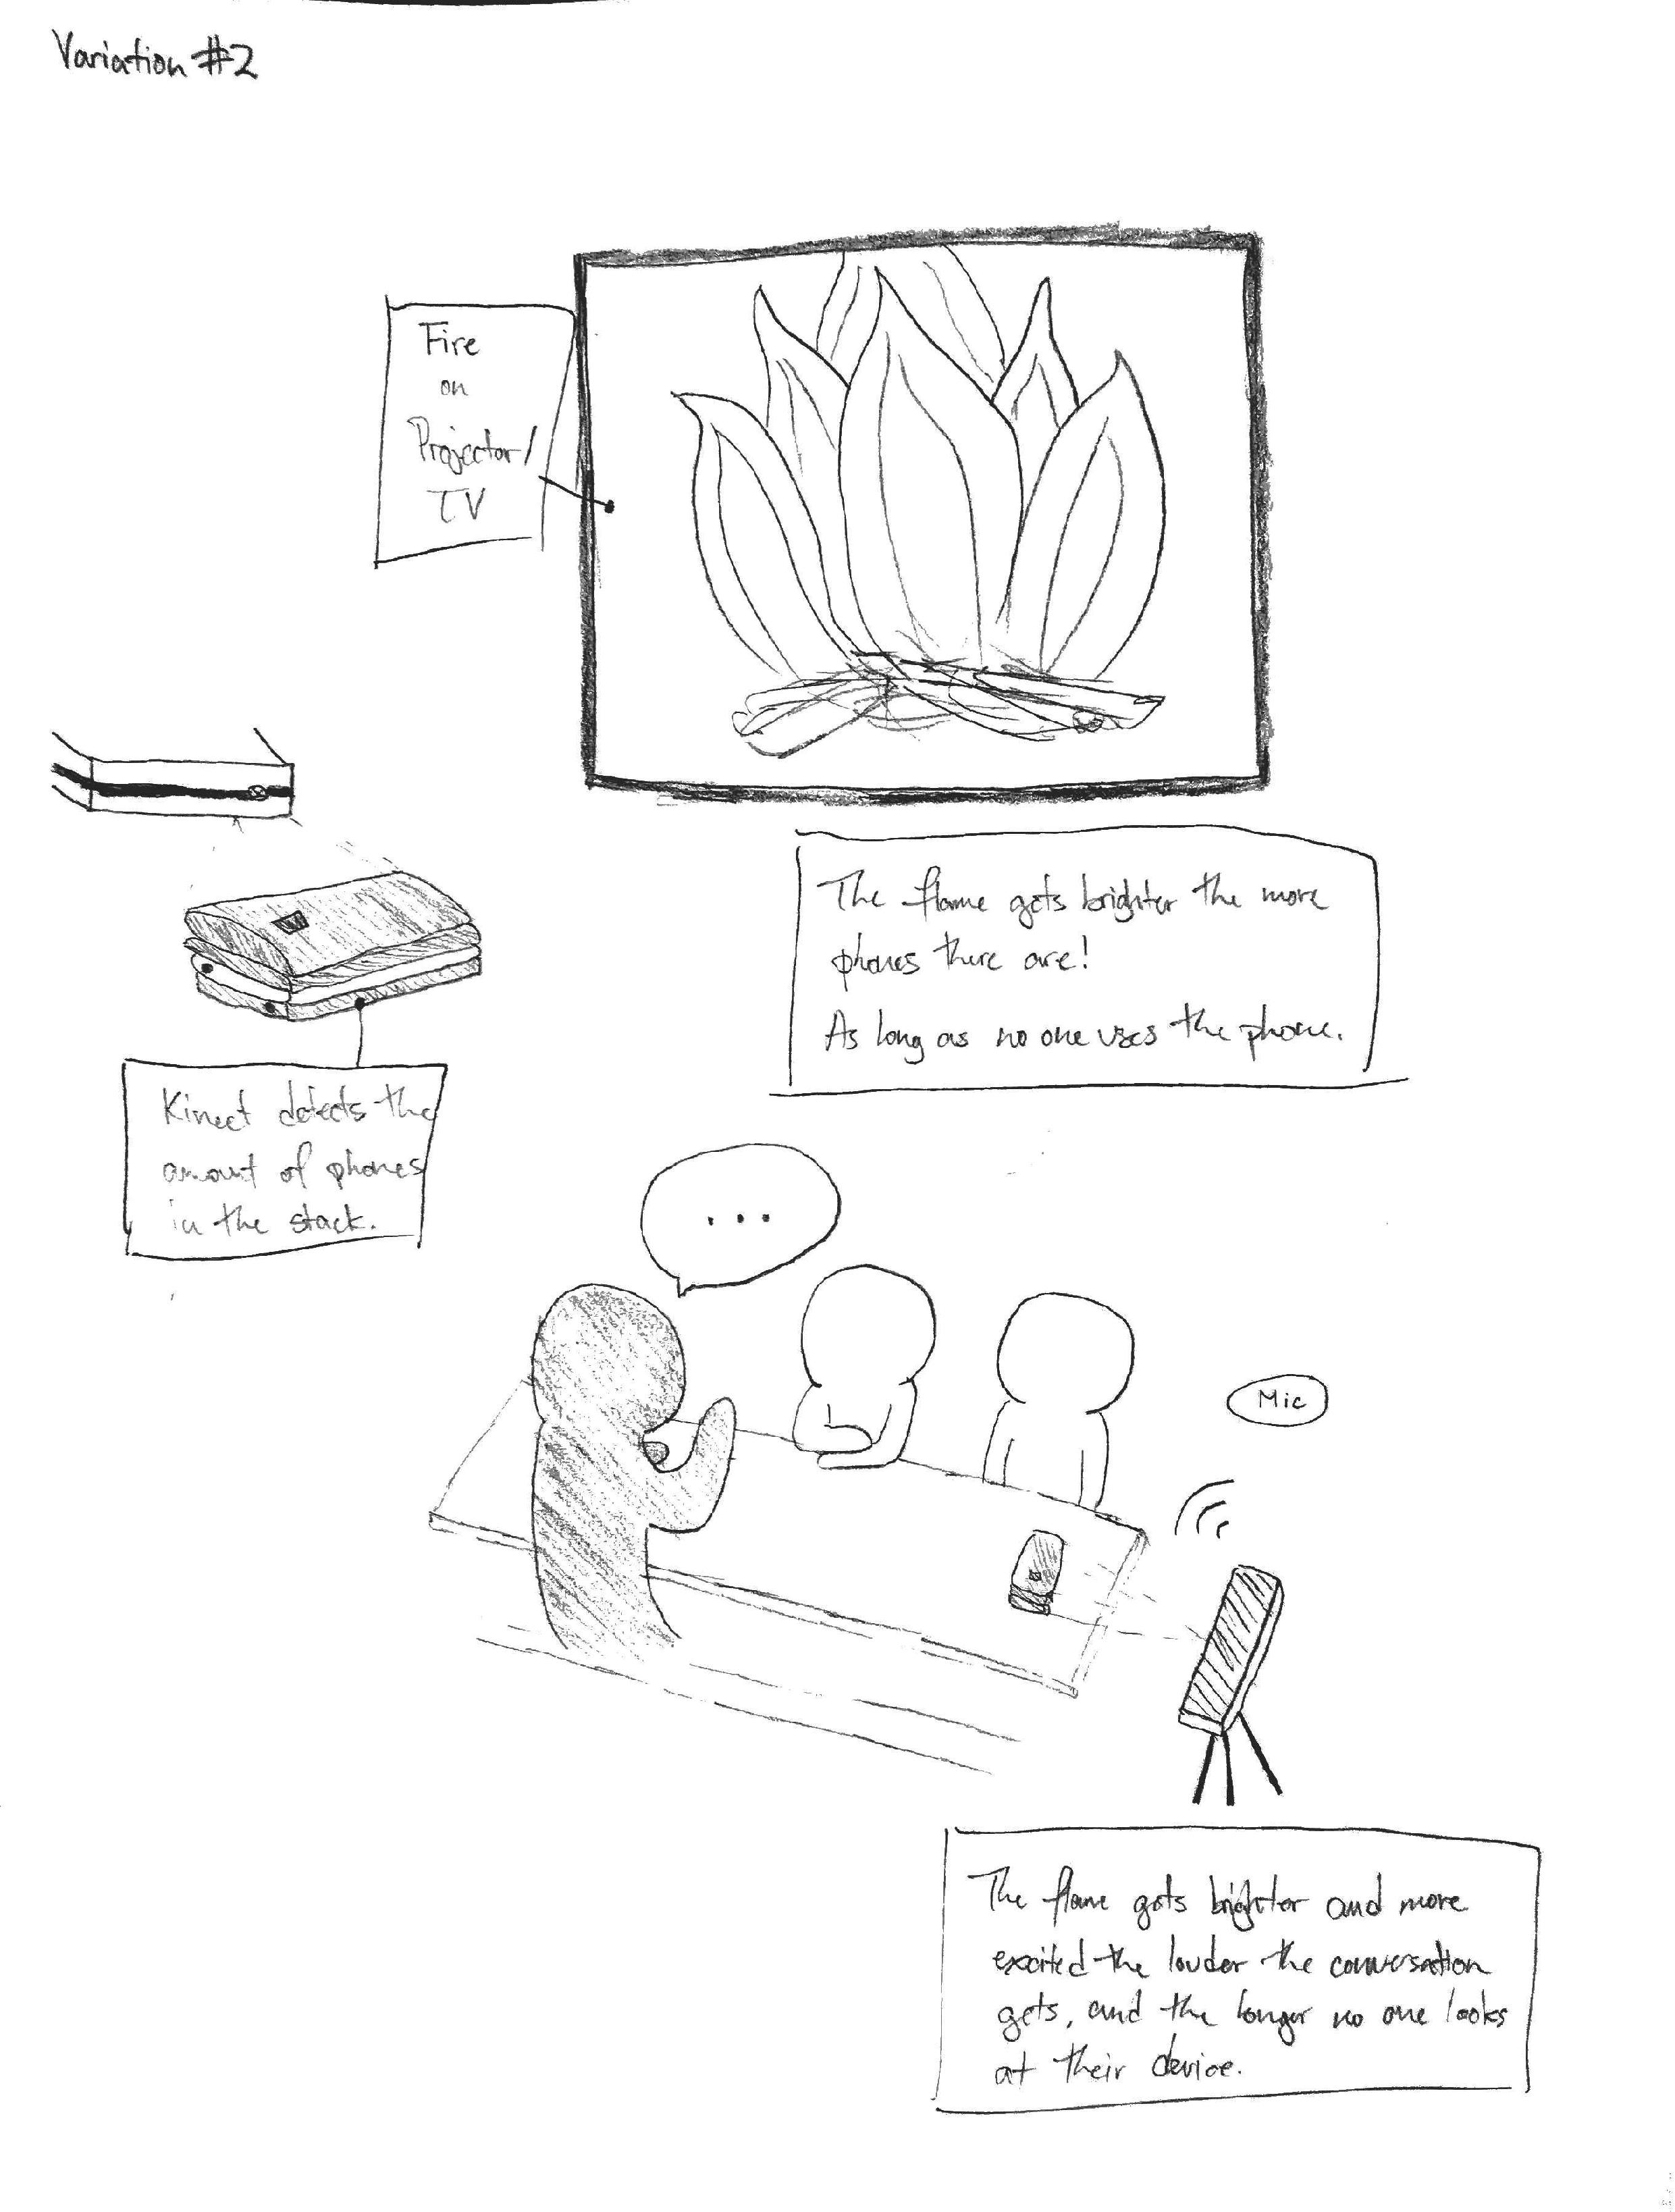 Variation #2
Fire
on
Projector/
TV
The flame gets brighter the more
phones there are!
As long as no one uses the phone.
Kinect detects the
amount of phones
in the stack.
...
Mic
The flame gets brighter and more
excited the louder the conversation
gets, and the longer no one looks
at their device.